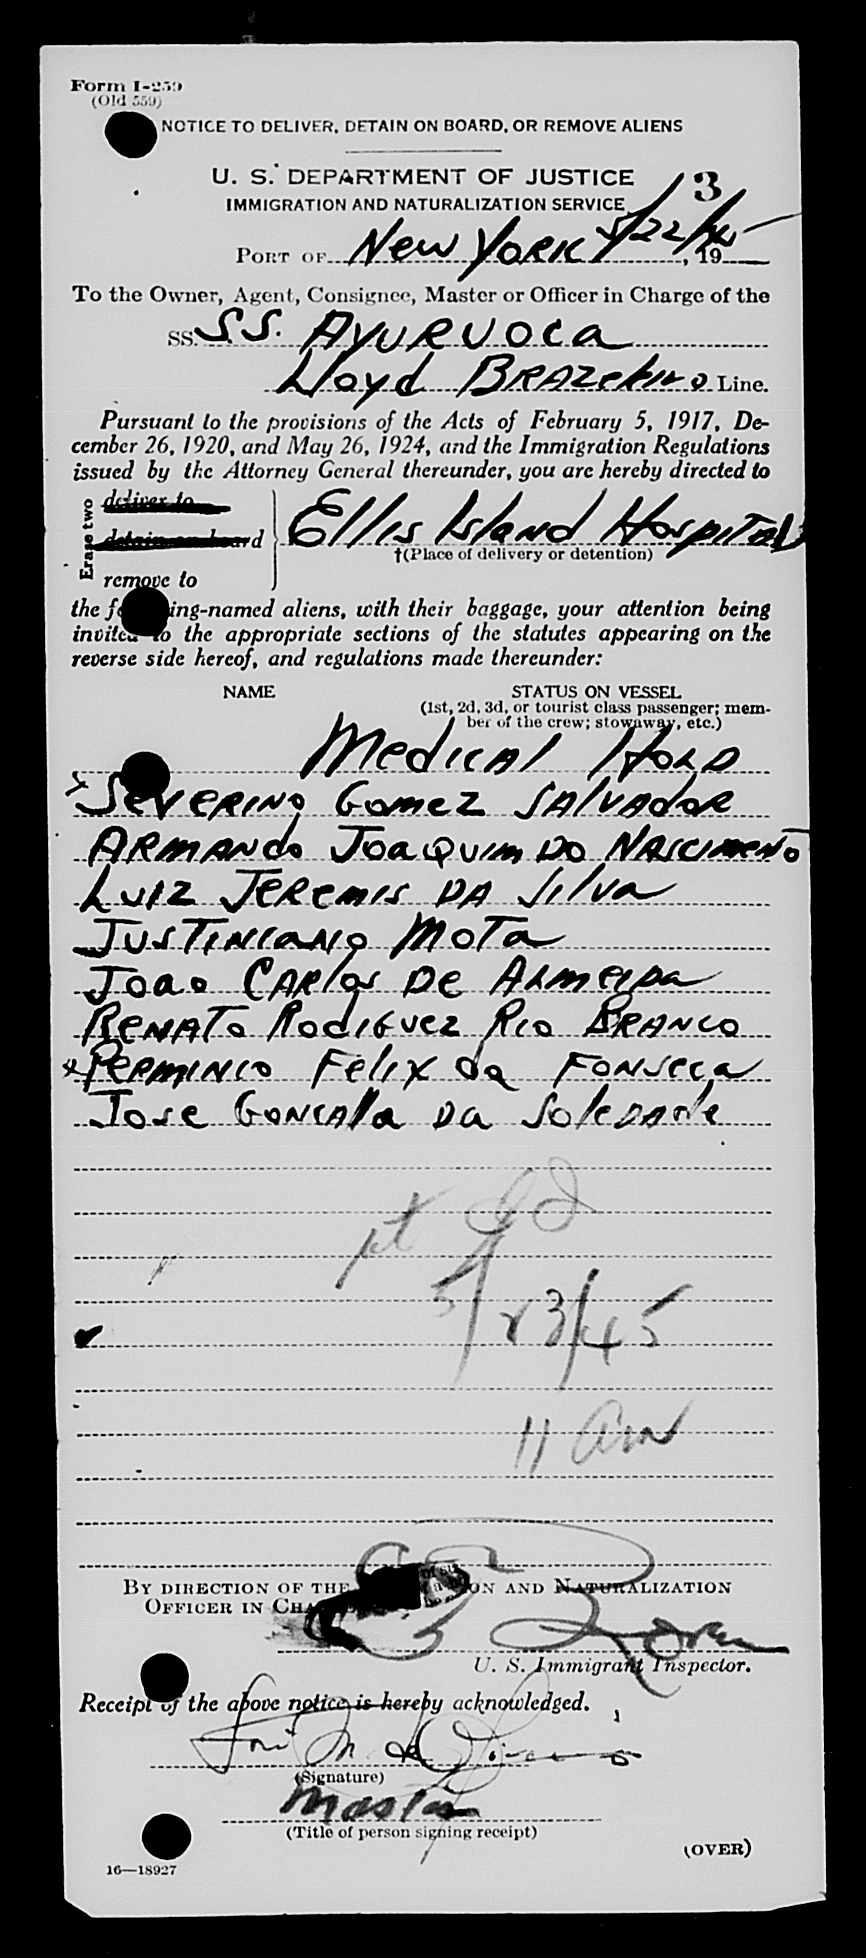 Form I-259
(Old 559)
NOTICE TO DELIVER, DETAIN ON BOARD, OR REMOVE ALIENS
U. S. DEPARTMENT OF JUSTICE
3
IMMIGRATION AND NATURALIZATION SERVICE
PORT OF New York 5/22/45, 19
To the Owner, Agent, Consignee, Master or Officer in Charge of the
SS. S.S. Ayuruoca
Lloyd Line.
Pursuant to the provisions of the Acts of February 5, 1917, De-
cember 26, 1920, and May 26, 1924, and the Immigration Regulations
issued by the Attorney General thereunder, you are hereby directed to
Erase two
deliver to
detain on board
remove to
Ellis Island Hospital
†(Place of delivery or detention)
the ing-named aliens, with their baggage, your attention being
invited to the appropriate sections of the statutes appearing on the
reverse side hereof, and regulations made thereunder:
NAME STATUS ON VESSEL
(1st, 2d, 3d, or tourist class passenger; mem-
ber of the crew; stowaway, etc.)
Medical Hold
x Severino Gomez Salvador
Armando Joaquim Do Nascimento
Luiz Jeremis Da Silva
Justiniano Mota
Joao Carlos De Almeida
Renato Rodiguez Rio Branco
x Perminio Felix da Fonseca
Jose Goncalla Da Soledade
5/23/45
11 am
BY DIRECTION OF THE ON AND NATURALIZATION
OFFICER IN
U. S. Immigrant Inspector.
Receipt of the above notice is hereby acknowledged.
(Signature)
Master
(Title of person signing receipt)
(OVER)
16—18927